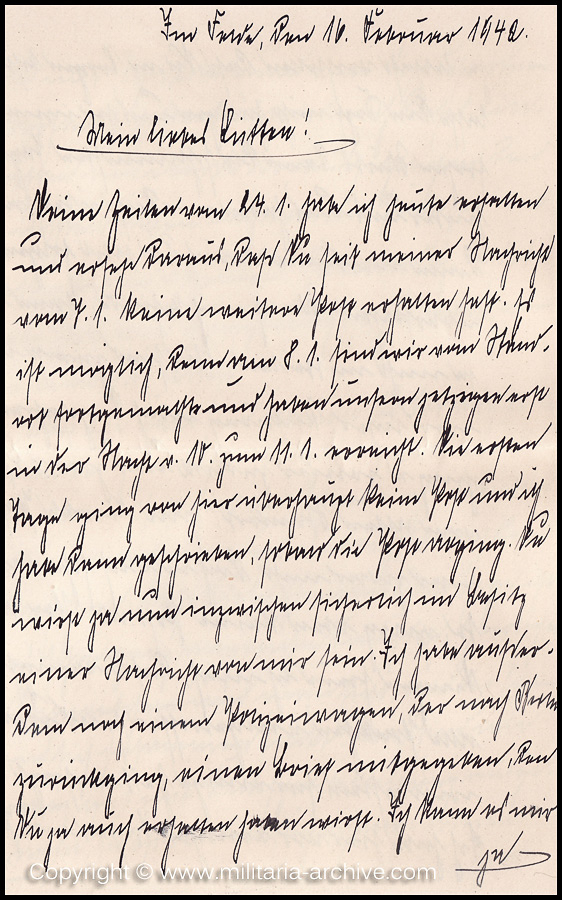 Im Felde, den 16. Februar 1942.
Mein liebes Lütten!
Deine Zeilen vom 24. 1. habe ich heute erhalten
und ersehe daraus, daß Du seit meiner Nachricht
vom 7. 1. keine weitere Post erhalten hast. Es
ist möglich, denn am 8. 1. sind wir vom Stand-
ort fortgemacht und haben unsern jetzigen erst
in der Nacht v. 10. zum 11. 1. erreicht. Die ersten
Tage ging von hier überhaupt keine Post und ich
habe dann geschrieben, sobald die Post abging. Du
wirst ja nun inzwischen sicherlich im Besitz
einer Nachricht von mir sein. Ich habe außer-
dem noch einem Polizeiwagen, der nach Berlin
zurückging, einen Brief mitgegeben, den
Du ja auch erhalten haben wirst. Ich kann es mir
ja
Copyright © www.militaria-archive.com